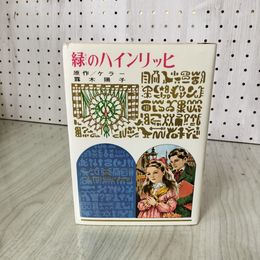 緑のハインリッヒ
原作／ケラー
露木陽子